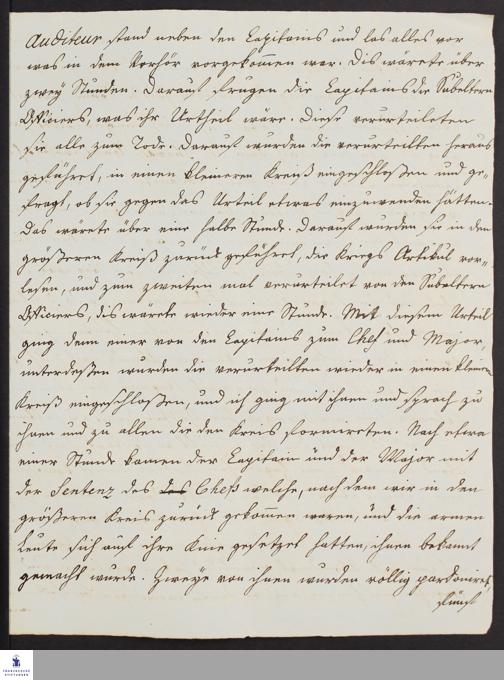 Auditeur stand neben den Capitains und las alles vor
was in dem Verhör vorgekommen war. Dis wärete über
zwey Stunden. Darauf frugen die Capitains die Subaltern
Officiers, was ihr Urtheil wäre. Diese verurteileten
sie alle zum Tode. Darauf wurden die verurteilten heraus
geführet, in einen kleineren Kreiß eingeschloßen und ge-
fragt, ob sie gegen das Urteil etwas einzuwenden hätten.
Das wärete über eine halbe Stunde. Darauf wurden sie in den
größeren Kreiß zurück geführet, die Kriegs Artikul vor-
lesen, und zum zweiten mal verurteilet von den Subaltern
Officiers, dis wärete wieder eine Stunde. Mit diesem Urteil
ging denn einer von den Capitains zum Chef und Major,
unterdeßen wurden die verurteilten wieder in einen kleinen
Kreiß eingeschloßen, und ich ging mit ihnen und sprach zu
ihnen und zu allen die den Kreis formireten. Nach etwa
einer Stunde kamen der Capitain und der Major mit
der Sentenz des des Chefs welche, nach dem wir in den
größeren Kreis zurück gekommen waren, und die armen
Leute sich auf ihre Knie gesetzet hatten, ihnen bekant
gemacht wurde. Zweye von ihnen wurden völlig pardoniret,
fünf
FRANCKESCHE
STIFTUNGEN